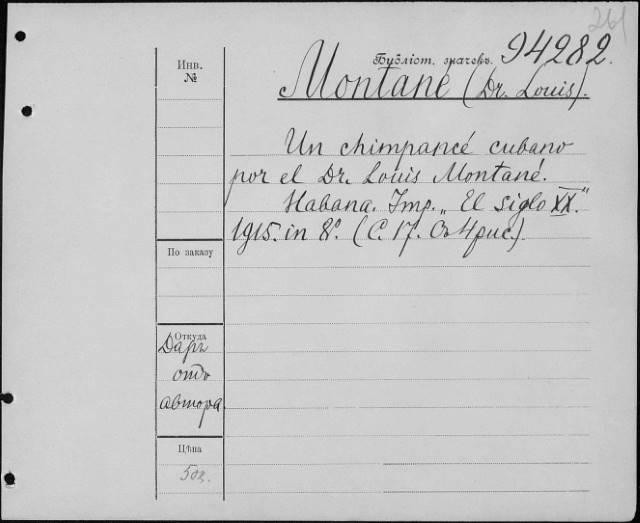 261
Библіот. значекъ. 94282.
Инв.
№
Montané (Dr. Louis).
Un chimpancé cubano
por el Dr. Louis Montané.
Habana. Imp. „El siglo XX."
1915. in 8°. (С. 17. Съ 4 рис.)
По заказу
Откуда
Даръ
отъ
автора.
Цѣна